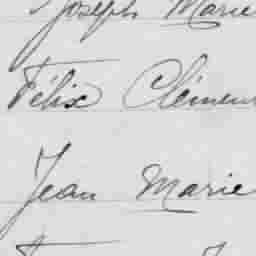 Joseph Marie
Félix Clémen
Jean Marie